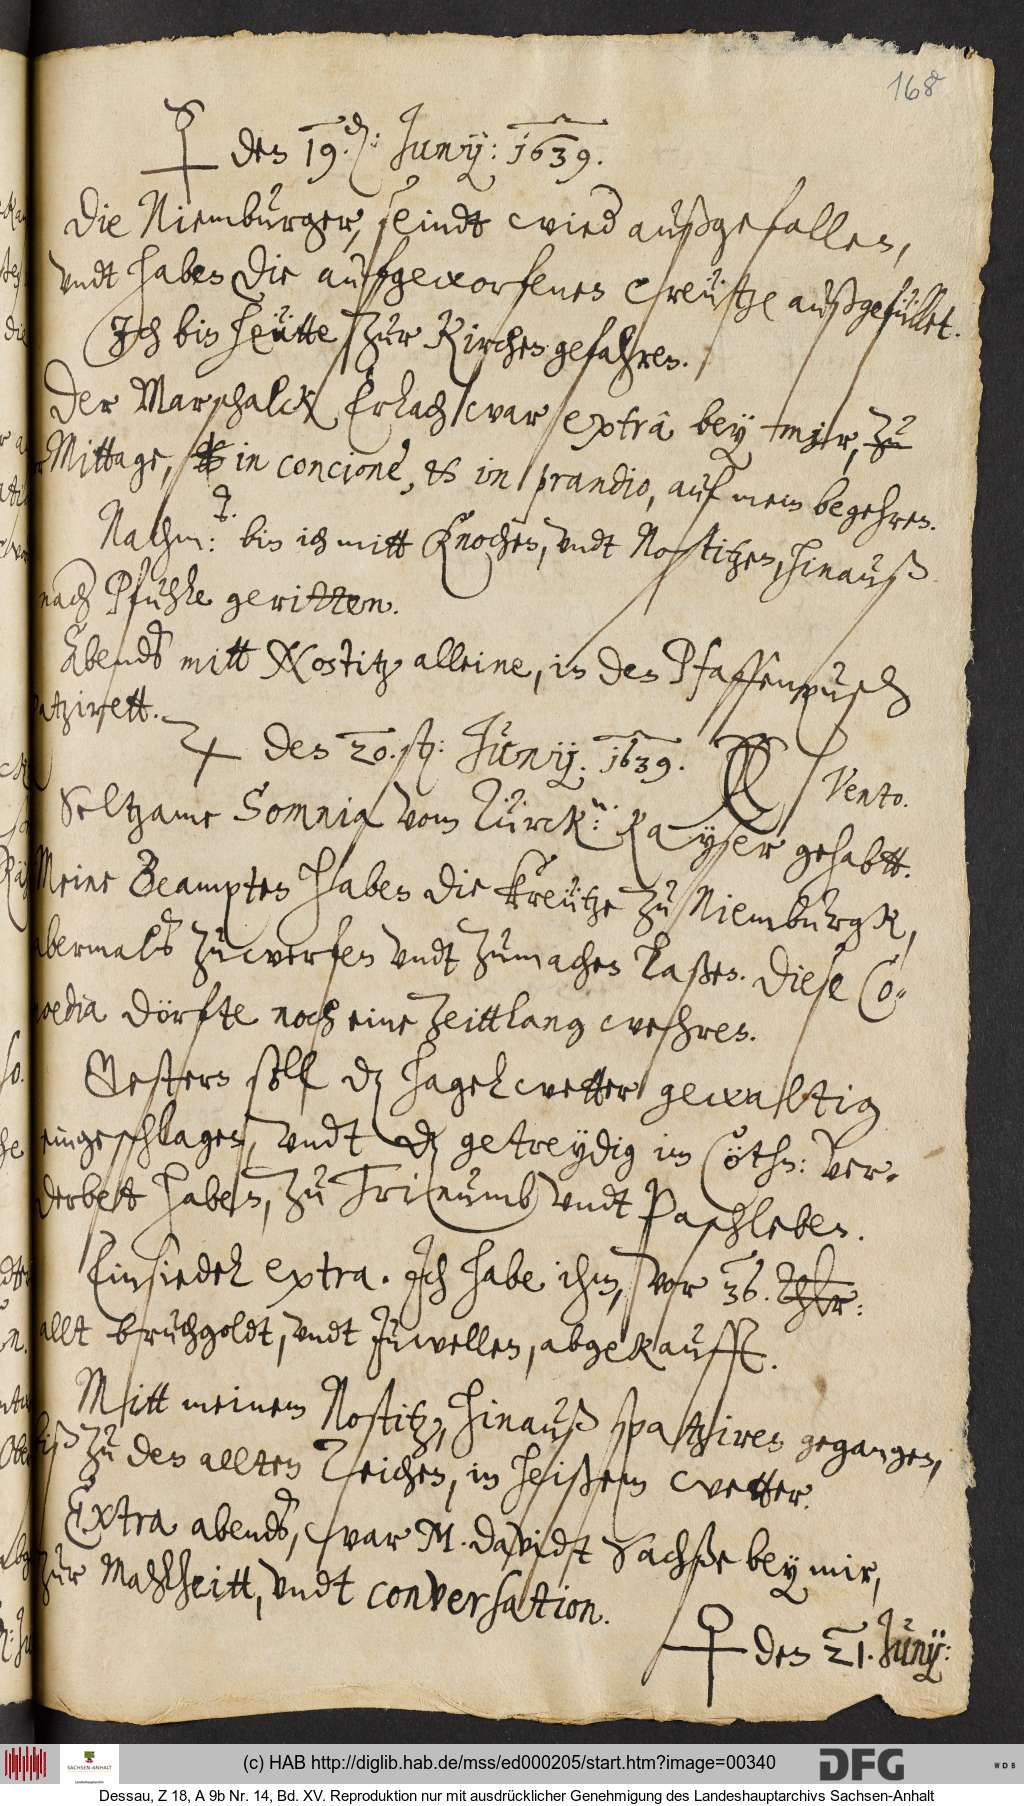 168
☿ den 19.den: Junij: 1639.
Die Niemburger, seindt wied außgefallen,
vndt haben die aufgeworfenen Creütze außgefüllet.
Ich bin heütte zur Kirchen gefahren.
Der Marschalck Erlach war extra bey mir, zu
Mittage, & in concione, & in prandio, auf mein begehren.
Nachm: bin ich mitt Knochen, vndt Nostitzen, hinauß
nach Pfuhle geritten.
Abends mitt Nostitz alleine, in den Pfaffenpusch
patzirett.
♃ den 20. sten: Junij. 1639.
Vento.
Seltzame Somnia vom Türck:n Kayser gehabtt.
Meine Beampten haben die kreütze zu Niemburgk,
abermals zuwerfen vndt zumachen laßen. Diese Co-
moedia dörfte noch eine zeittlang wehren.
Gestern soll dz hagelwetter gewaltig
eingeschlagen, vndt dz getreydig im Cöthn: ver-
derbett haben, zu Trinumb vndt Paschleben.
Einsiedel extra. Ich habe ihm, vor 36. Thlr:
allt bruchgoldt, vndt Juwellen, abgekaufft.
Mitt meinem Nostitz, hinauß spatziren gegangen,
biß zu den allten Teichen, in heißem wetter.
Extra abends, war M. Davidt Sachße bey mir,
zur Mahlzeitt, vndt conversation.
♀ den 21. Junij:
(c) HAB http://diglib.hab.de/mss/ed000205/start.htm?image=00340
DFG
WDB
SACHSEN-ANHALT
Dessau, Z 18, A 9b Nr. 14, Bd. XV. Reproduktion nur mit ausdrücklicher Genehmigung des Landeshauptarchivs Sachsen-Anhalt